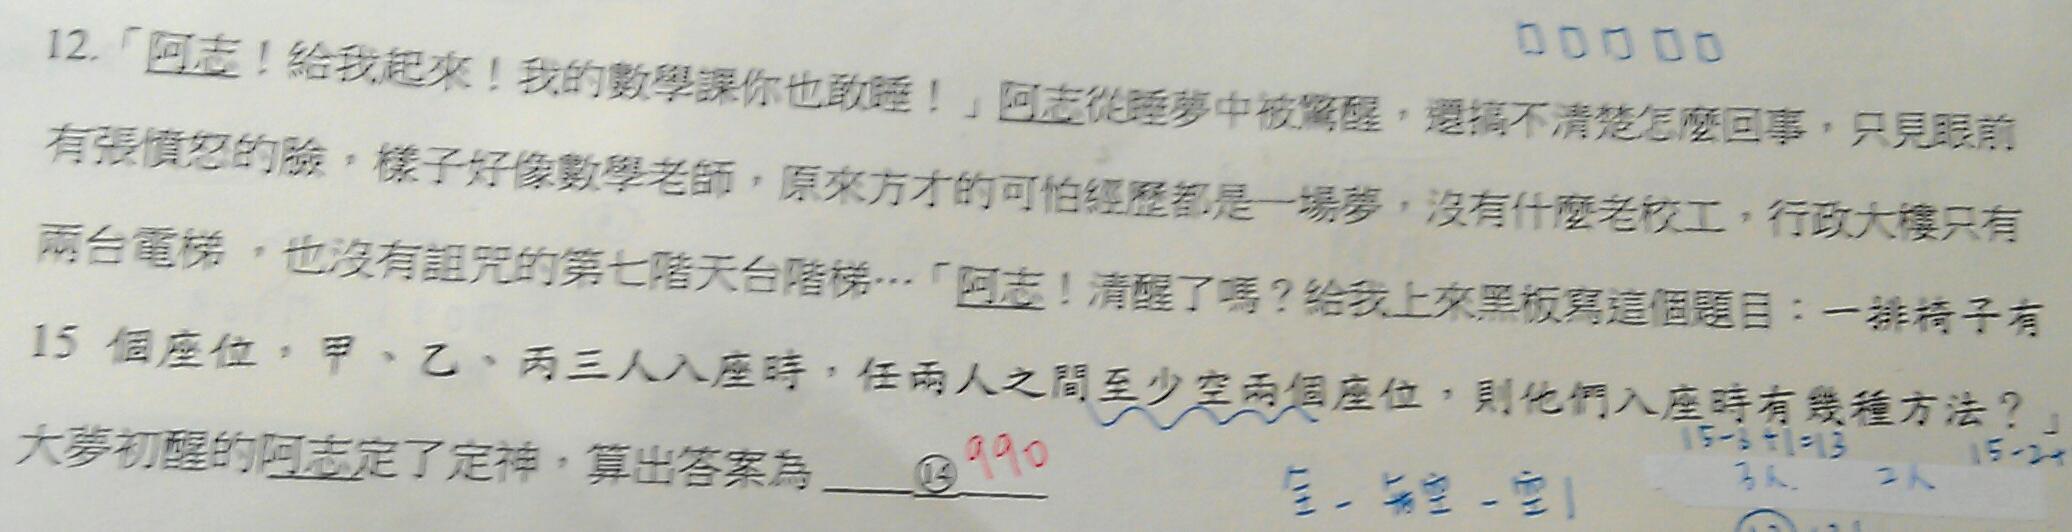 12.「阿志！給我起來！我的數學課你也敢睡！」阿志從睡夢中被驚醒，還搞不清楚怎麼回事，只見眼前
有張憤怒的臉，樣子好像數學老師，原來方才的可怕經歷都是一場夢，沒有什麼老校工，行政大樓只有
兩台電梯，也沒有詛咒的第七階天台階梯…「阿志！清醒了嗎？給我上來黑板寫這個題目：一排椅子有
15 個座位，甲、乙、丙三人入座時，任兩人之間至少空兩個座位，則他們入座時有幾種方法？」
15-3+1=13
15-2+
大夢初醒的阿志定了定神，算出答案為 ⑭ 990
全-無空-空1
3人. 2人